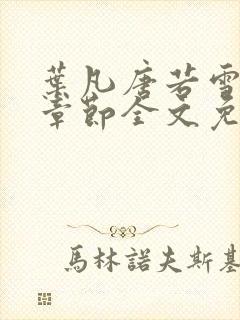 葉凡唐若雪
章節全文免
馬林諾夫斯基